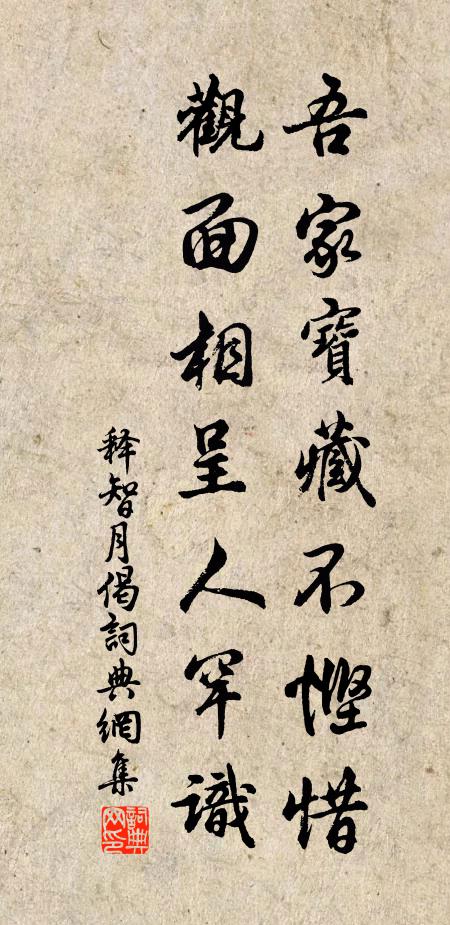 吾家寶藏不慳惜
觀面相呈人罕識
释智月偈詞典網集
詞典網印